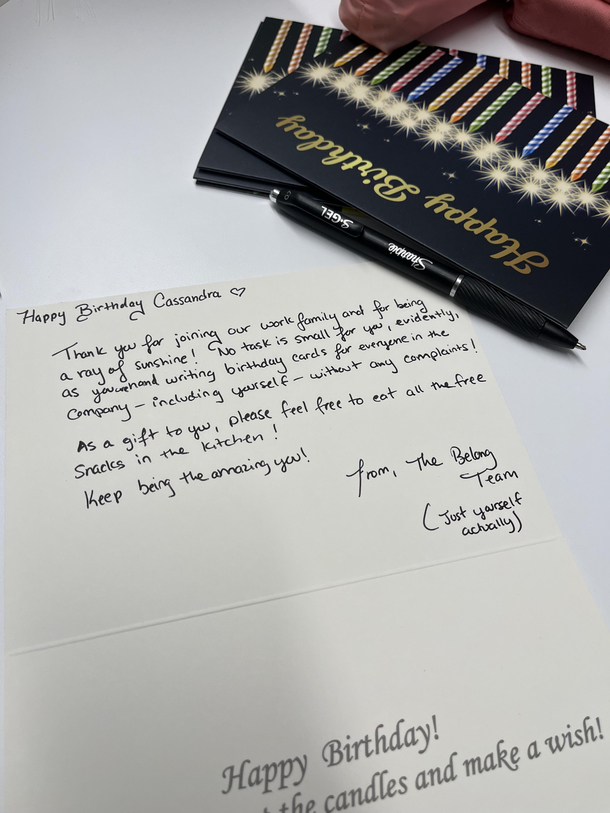 Happy Birthday
S·GEL
Sharpie
Happy Birthday Cassandra ♡
Thank you for joining our work family and for being
a ray of sunshine! No task is small for you, evidently,
as you're hand writing birthday cards for everyone in the
company – including yourself – without any complaints!
As a gift to you, please feel free to eat all the free
snacks in the kitchen!
Keep being the amazing you!
from, The Belong
Team
(Just yourself
actually)
Happy Birthday!
the candles and make a wish!